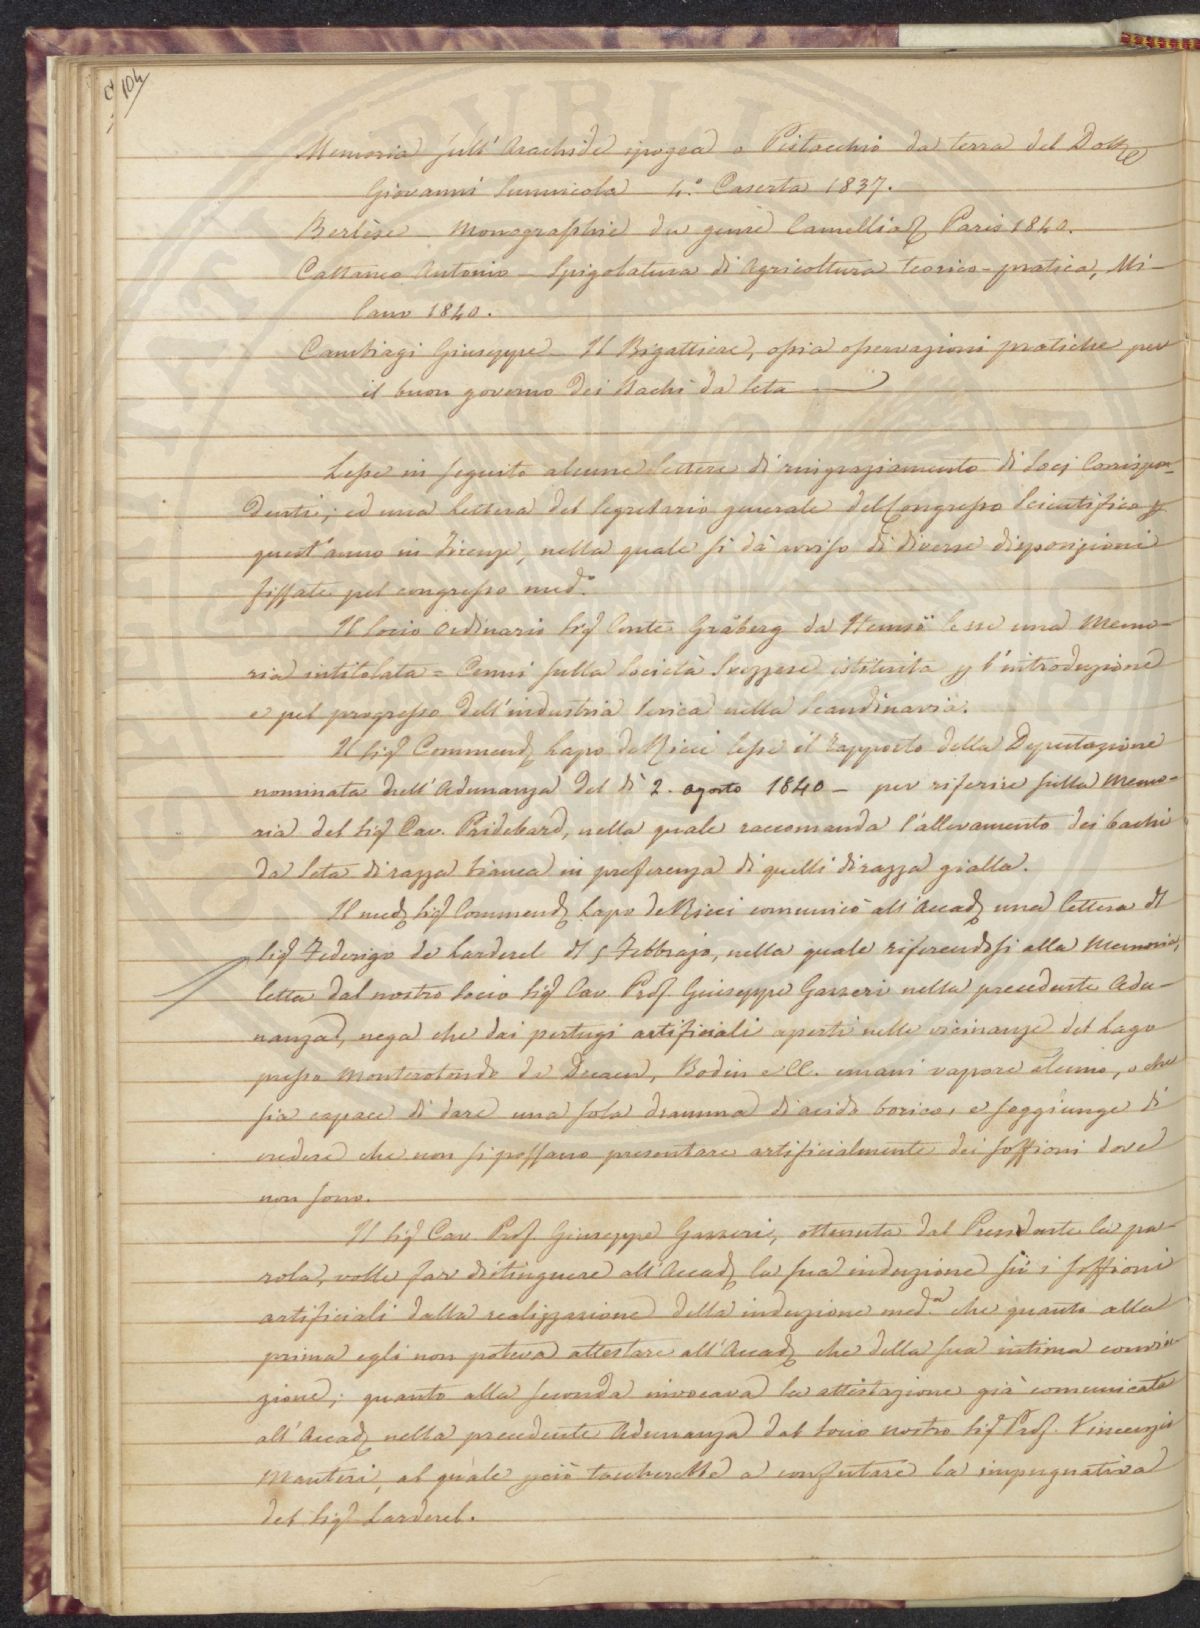 104
Memoria sull' Arachide ipogea o Pistacchio da terra del Dott.e
Giovanni Sennicola 4.° Caserta 1837.
Berlèse — Monographie du genre Camellia, Paris 1840.
Cattaneo Antonio — Spigolatura di Agricoltura teorico-pratica, Mi-
lano 1840.
Cambiagi Giuseppe — Il Bigattiere, ossia osservazioni pratiche per
il buon governo dei Bachi da Seta
Lesse in seguito alcune lettere di ringraziamento di Socj Corrispon-
denti; ed una lettera del Segretario generale del Congresso Scientifico p
quest'anno in Firenze, nella quale si dà avviso di diverse disposizioni
fissate pel congresso med.°
Il Socio Ordinario Sig. Conte Gråberg da Hemsö lesse una Memo-
ria intitolata = Cenni sulla Società Svezzese istituita p l'introduzione
e pel progresso dell'industria Serica nella Scandinavia.
Il Sig. Commend. Lapo de Ricci lesse il Rapporto della Deputazione
nominata dall'Adunanza del dì 2. agosto 1840 — per riferire sulla Memo-
ria del Sig. Cav. Pridebard, nella quale raccomanda l'allevamento dei bachi
da Seta di razza bianca in preferenza di quelli di razza gialla.
Il med. Sig. Commend. Lapo de Ricci comunicò all'Accad. una lettera di
Sig. Federigo de Larderel di 5 Febbrajo, nella quale riferendosi alla Memoria,
letta dal nostro Socio Sig. Cav. Prof. Giuseppe Gazzeri nella precedente Adu-
nanza, nega che dai pertugi artificiali aperti nelle vicinanze del Lago
presso Monterotondo da Ducaen, Bodin e CC. emani vapore alcuno, o che
sia capace di dare una sola dramma di acido borico, e soggiunge di
credere che non si possano presentare artificialmente dei soffioni dove
non sono.
Il Sig. Cav. Prof. Giuseppe Gazzeri, ottenuta dal Presidente la pa-
rola, volle far distinguere all'Accad. la sua induzione su i soffioni
artificiali dalla realizzazione della induzione med.a che quanto alla
prima egli non poteva attestare all'Accad. che della sua intima convin
zione; quanto alla seconda invocava la attestazione già comunicata
all'Accad. nella precedente Adunanza dal Socio nostro Sig. Prof. Vincenzio
Manteri, al quale poi toccherebbe a confutare la impugnativa
del Sig. Larderel.